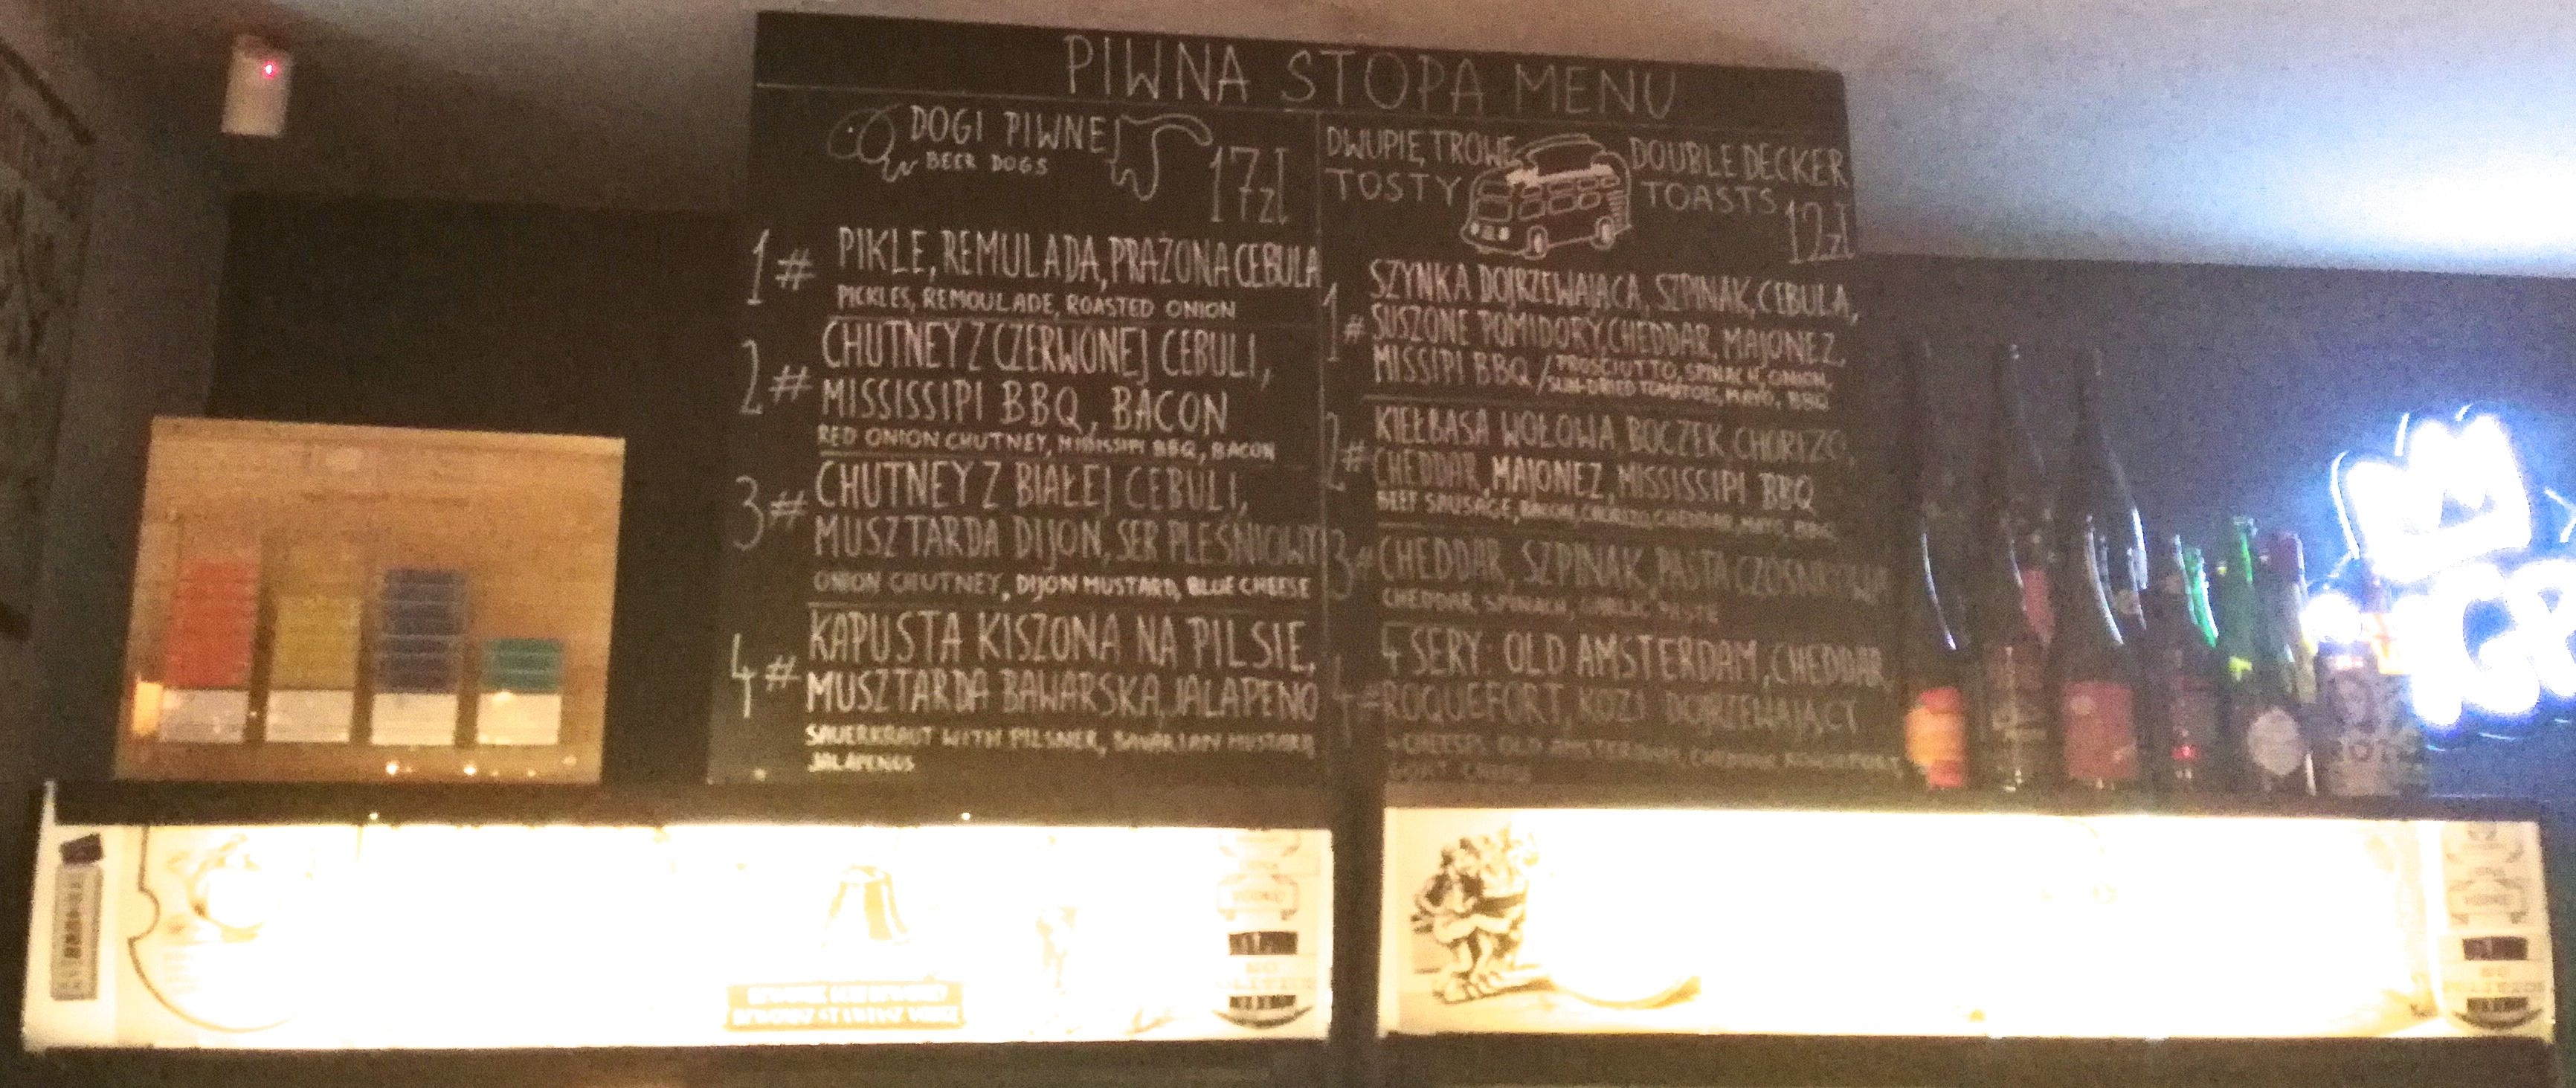 PIWNA STOPA MENU
DOGI PIWNE
BEER DOGS
17zł
1# PIKLE, REMULADA, PRAŻONA CEBULA
PICKLES, REMOULADE, ROASTED ONION
2# CHUTNEY Z CZERWONEJ CEBULI,
MISSISSIPI BBQ, BACON
RED ONION CHUTNEY, MISISSIPI BBQ, BACON
3# CHUTNEY Z BIAŁEJ CEBULI,
MUSZTARDA DIJON, SER PLEŚNIOWY
ONION CHUTNEY, DIJON MUSTARD, BLUE CHEESE
4# KAPUSTA KISZONA NA PILSIE,
MUSZTARDA BAWARSKA, JALAPENO
SAUERKRAUT WITH PILSNER, BAVARIAN MUSTARD,
JALAPENOS
DWUPIĘTROWE
TOSTY
DOUBLE DECKER
TOASTS
12zł
1# SZYNKA DOJRZEWAJĄCA, SZPINAK, CEBULA,
SUSZONE POMIDORY, CHEDDAR, MAJONEZ,
MISSIPI BBQ / PROSCIUTTO, SPINACH, ONION,
SUN-DRIED TOMATOES, MAYO, BBQ
2# KIEŁBASA WOŁOWA, BOCZEK, CHORIZO,
CHEDDAR, MAJONEZ, MISSISSIPI BBQ
BEEF SAUSAGE, BACON, CHORIZO, CHEDDAR, MAYO, BBQ
3# CHEDDAR, SZPINAK, PASTA CZOSNKOWA
CHEDDAR, SPINACH, GARLIC PASTE
4# 4 SERY: OLD AMSTERDAM, CHEDDAR,
ROQUEFORT, KOZI DOJRZEWAJĄCY
4 CHEESES, OLD AMSTERDAM, CHEDDAR, ROQUEFORT,
GOAT CHEESE